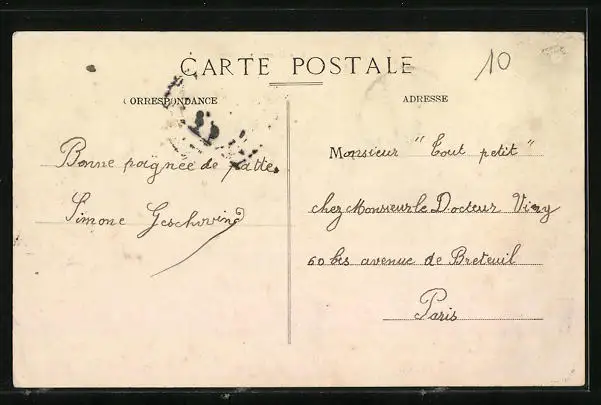 CARTE POSTALE
10
CORRESPONDANCE
ADRESSE
Bonne poignée de patte.
Simone
Monsieur "Tout petit"
chez Monsieur le Docteur
60 bis avenue de Breteuil
Paris